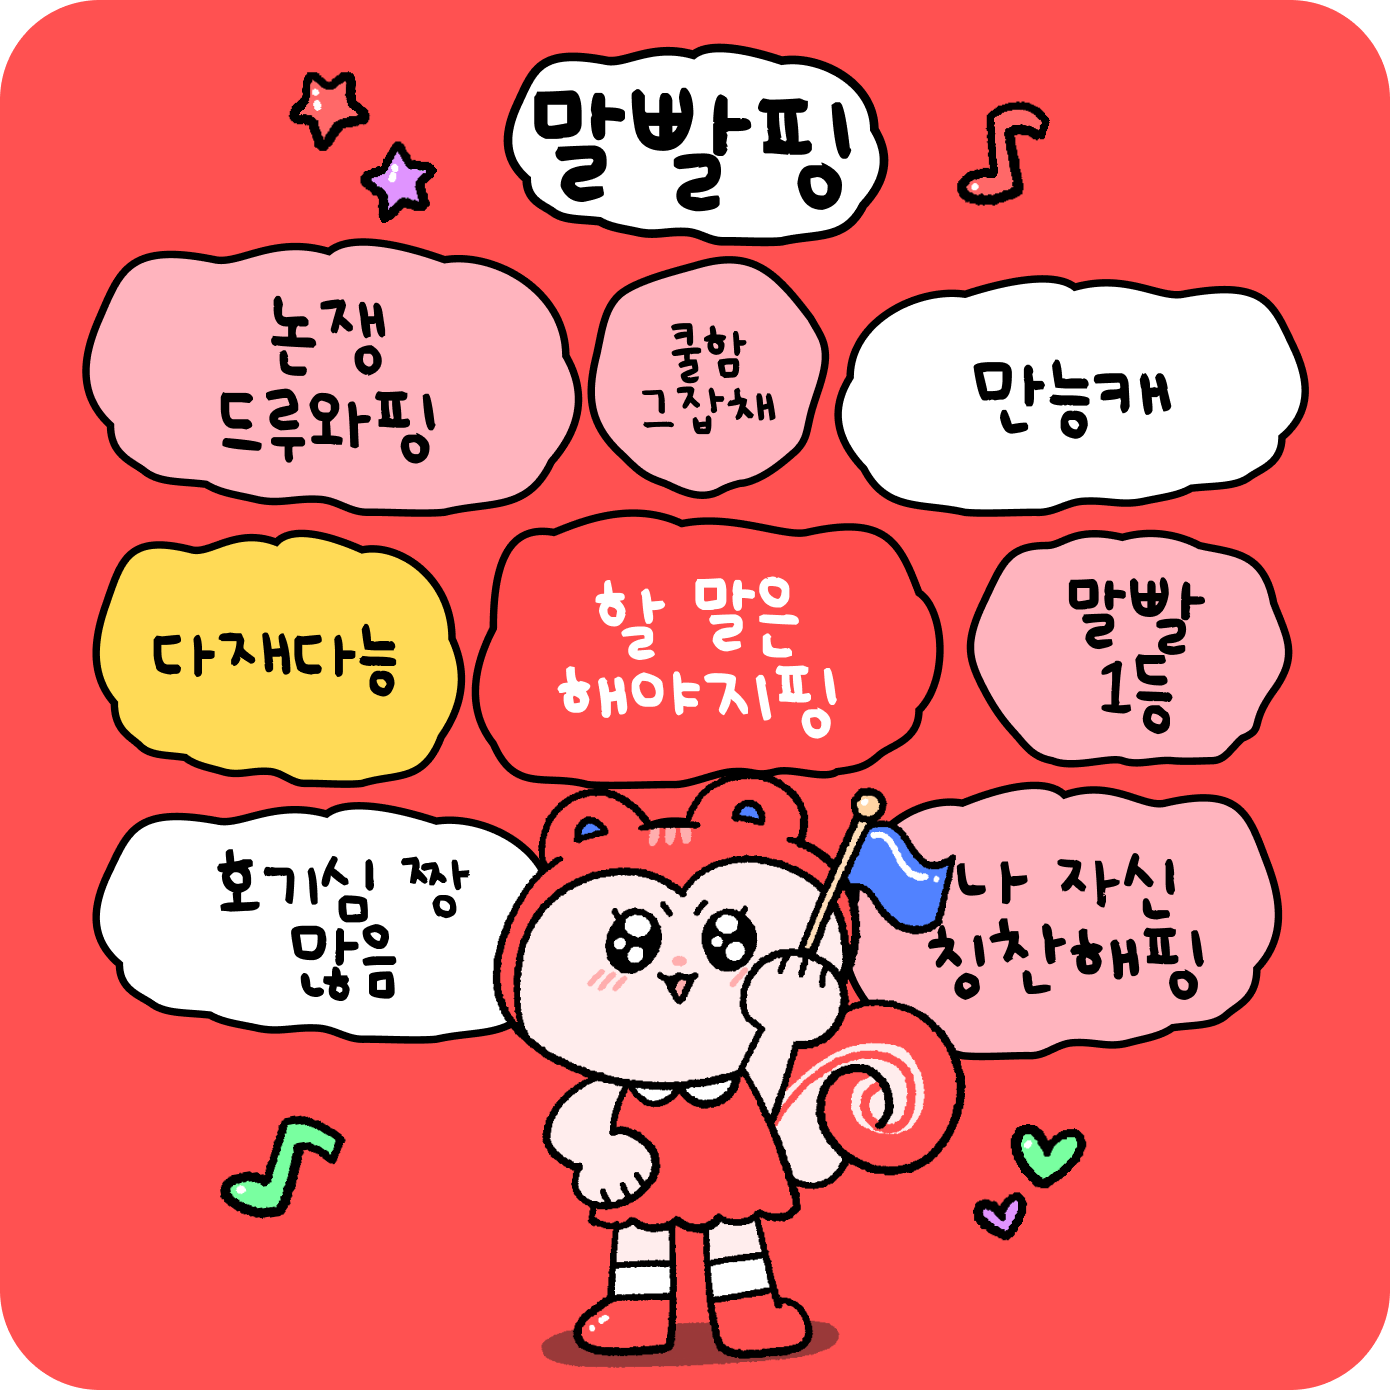 말빨핑
논쟁
드루와핑
쿨함
그잡채
만능캐
다재다능
할 말은
해야지핑
말빨
1등
호기심 짱
많음
나 자신
칭찬해핑